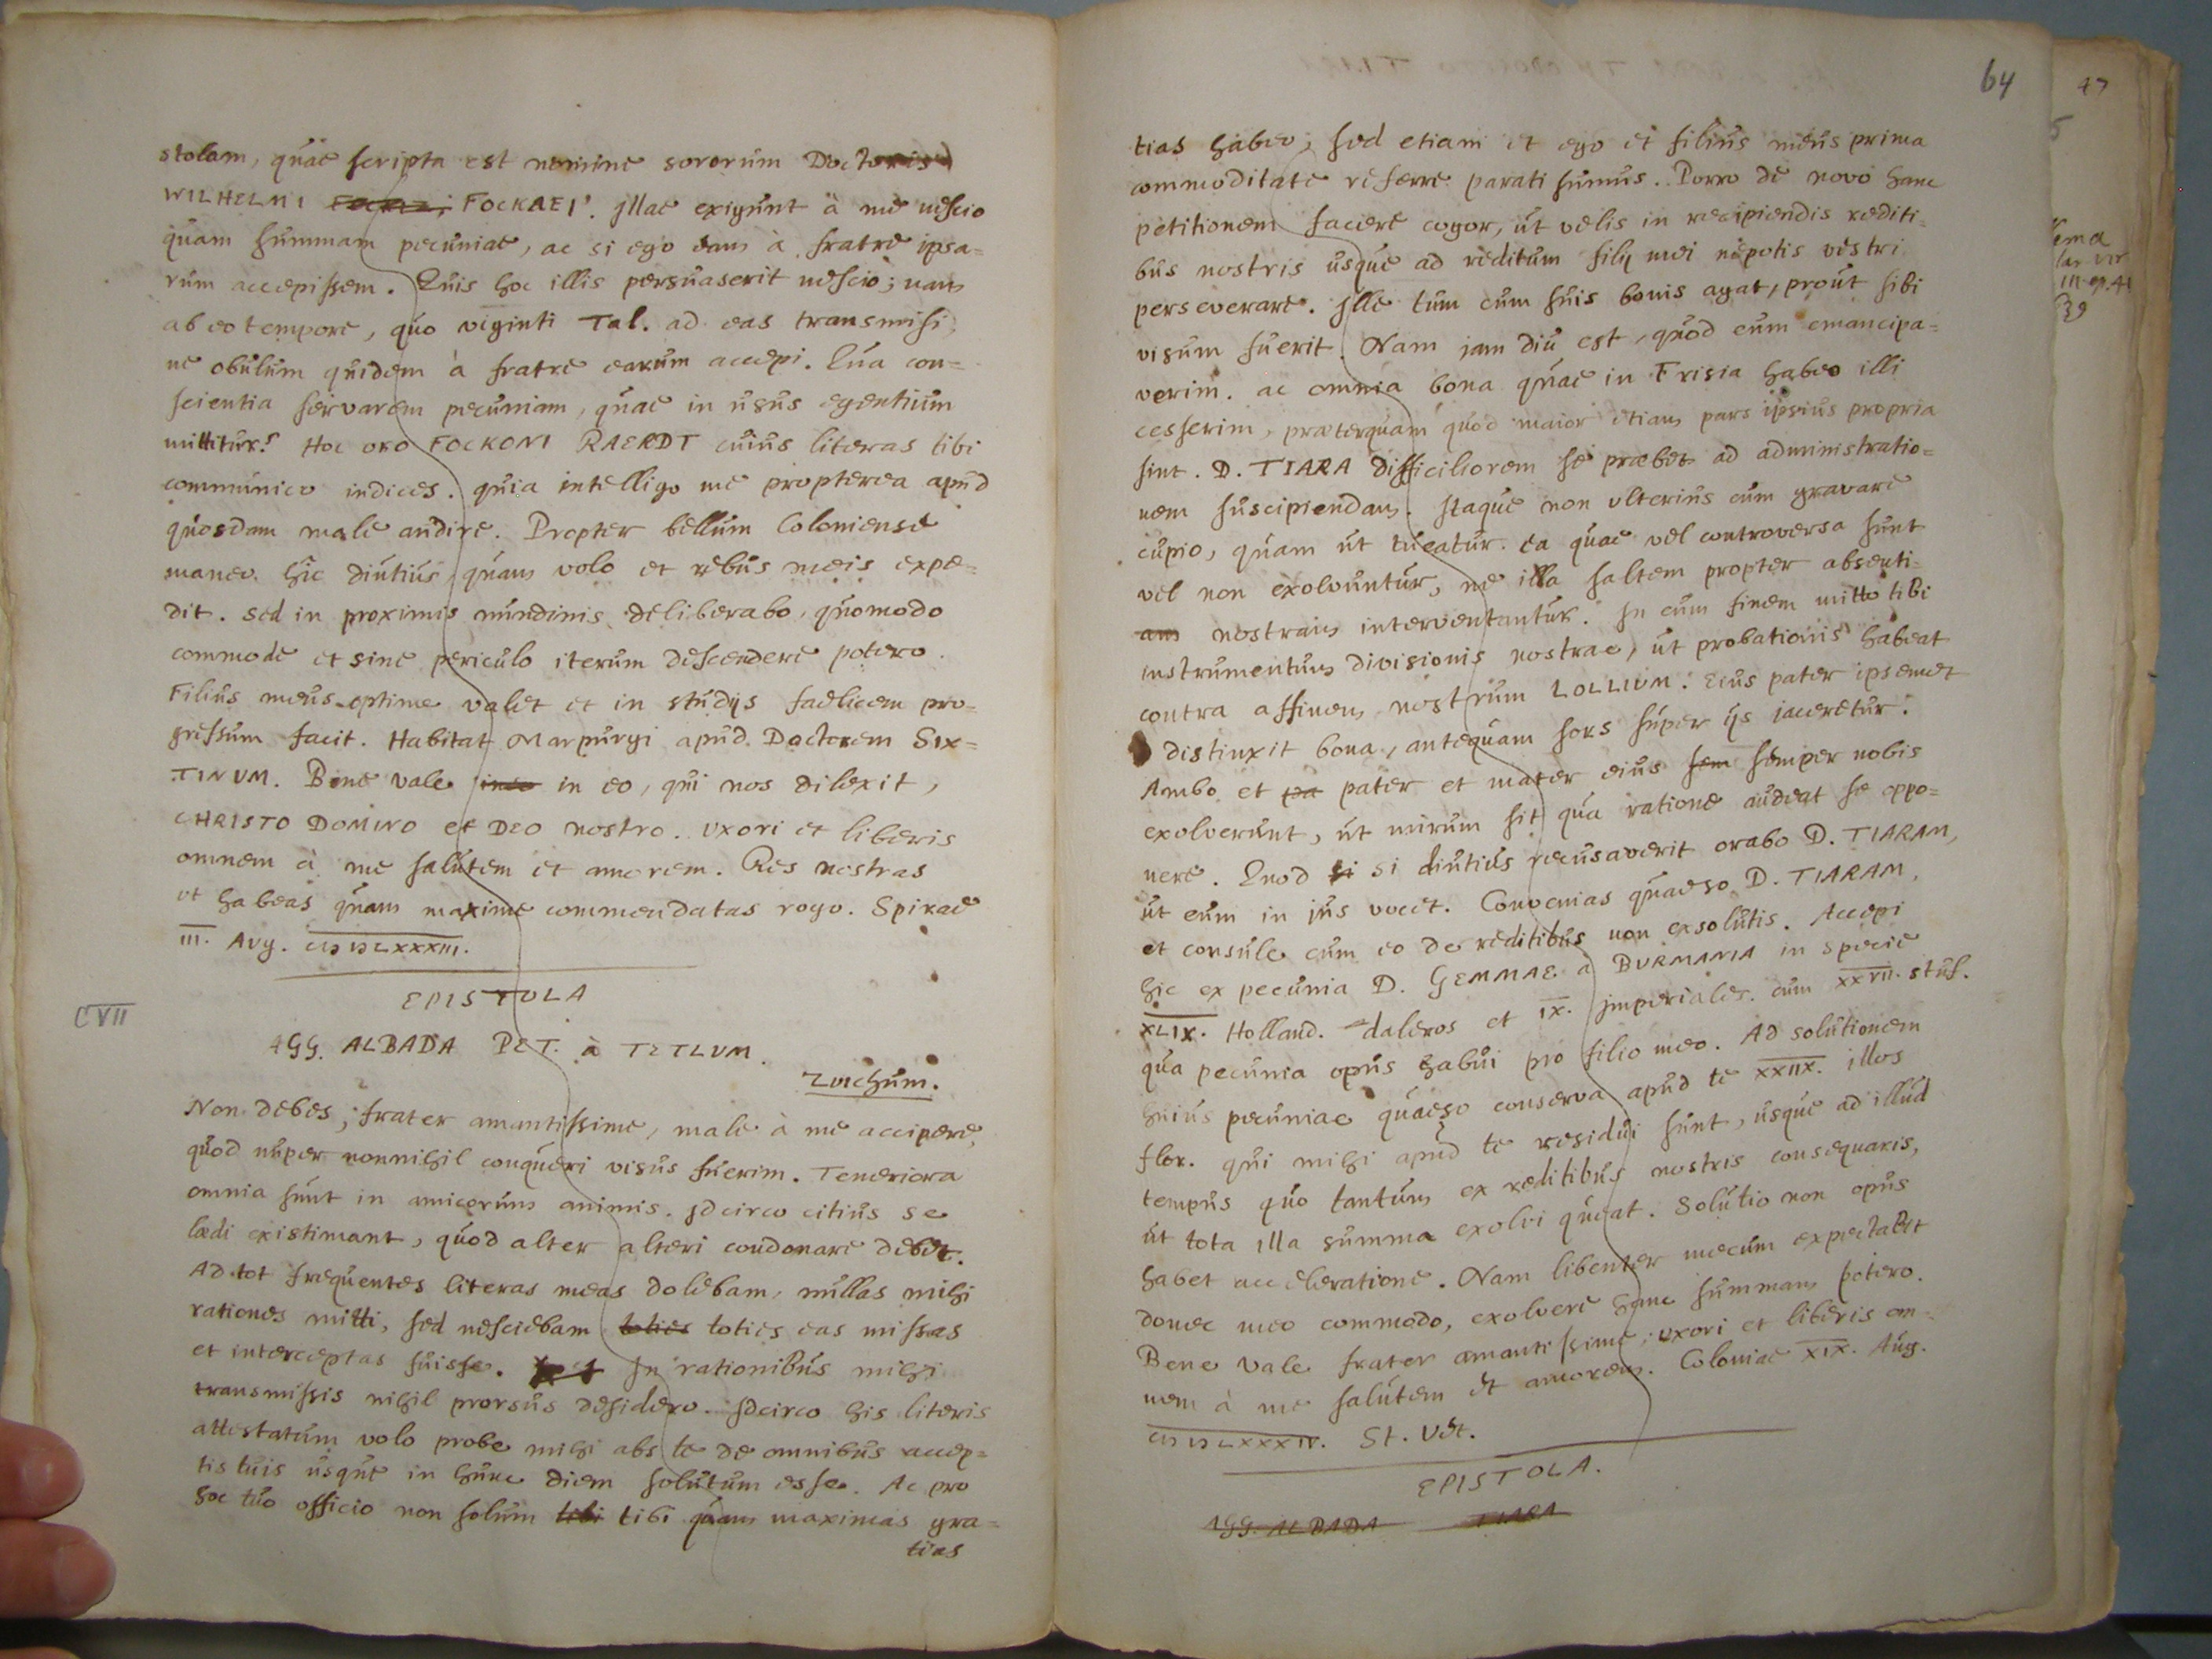 stolam, quae scripta est nomine sororum Doctoris
WILHELMI FOCKAEI. Illae exigunt à me nescio
quam summam pecuniae, ac si ego eam à fratre ipsa=
rum accepissem. Quis hoc illis persuaserit nescio; nam
ab eo tempore, quo viginti Tal. ad eas transmisi
ne obulum quidem à fratre earum accepi. Qua con=
scientia servarem pecuniam, quae in usus egentium
mittitur? Hoc oro FOCKONI RAERDT cuius literas tibi
communico indices. quia intelligo me propterea apud
quosdam male audire. Propter bellum Coloniense
maneo hic diutius quam volo et rebus meis expe=
dit. sed in proximis nundinis deliberabo, quomodo
commode et sine periculo iterum descendere potero.
Filius meus optime valet et in studijs faelicem pro=
gressum facit. Habitat Marpurgi apud Doctorem SIX=
TINUM. Bene vale in eo, qui nos dilexit,
CHRISTO DOMINO et DEO nostro. Uxori et liberis
omnem à me salutem et amorem. Res nostras
ut habeas quam maxime commendatas rogo. Spirae
III. Aug. CIƆ IƆ LXXXIII.
EPISTOLA
CVII
AGG. ALBADA PET. à TETLUM.
Zuichum.
Non debes, frater amantissime, male à me accipere,
quod nuper nonnihil conqueri visus fuerim. Teneriora
omnia sunt in amicorum animis. Idcirco citius se
laedi existimant, quod alter alteri condonare debet.
Ad tot frequentes literas meas dolebam, nullas mihi
rationes mitti, sed nesciebam toties toties eas missas
et interceptas fuisse. In rationibus mihi
transmissis nihil prorsus desidero. Idcirco his literis
attestatum volo probe mihi abs te de omnibus accep=
tis tuis usque in hunc diem solutum esse. Ac pro
hoc tuo officio non solum tibi tibi quam maximas gra=
tias
64
47
tias habeo, sed etiam et ego et filius meus prima
commoditate referre parati sumus. Porro de novo hanc
petitionem facere cogor, ut velis in recipiendis rediti=
bus nostris usque ad reditum filij mei nepotis vestri
perseverare. Ille tum cum suis bonis agat, prout sibi
visum fuerit. Nam jam diu est, quod eum emancipa=
verim. ac omnia bona quae in Frisia habeo illi
cesserim, praeterquam quod maior etiam pars ipsius propria
sint. D. TIARA difficiliorem se praebet ad administratio=
nem suscipiendam. Itaque non ulterius eum gravare
cupio, quam ut tueatur ea quae vel controversa sunt
vel non exolvuntur, ne illa saltem propter absenti=
am nostram interventantur. In eum finem mitto tibi
instrumentum divisionis nostrae, ut probationis habeat
contra affinem nostrum LOLLIUM. Eius pater ipsemet
distinxit bona, antequam sors super ijs jaceretur.
Ambo et pa pater et mater eius sem semper nobis
exolverunt, ut mirum sit qua ratione audeat se oppo=
nere. Quod si si diutius recusaverit orabo D. TIARAM,
ut eum in jus vocet. Convenias quaeso D. TIARAM,
et consule cum eo de reditibus non exsolutis. Accepi
hic ex pecunia D. GEMMAE a BURMANIA in specie
XLIX. Holland. daleros et IX. imperiales cum XXVII. stuf.
qua pecunia opus habui pro filio meo. Ad solutionem
huius pecuniae quaeso conserva apud te XXIIX. illos
flor. qui mihi apud te residui sunt, usque ad illud
tempus quo tantum ex reditibus nostris consequaris,
ut tota illa summa exolvi queat. Solutio non opus
habet acceleratione. Nam libenter mecum expectabit
donec meo commodo, exolvere hanc summam potero.
Bene vale frater amantissime, uxori et liberis om=
nem à me salutem et amorem. Coloniae XIX. Aug.
CIƆ IƆ LXXXIV. St. Vet.
EPISTOLA.
AGG. ALBADA TIARA